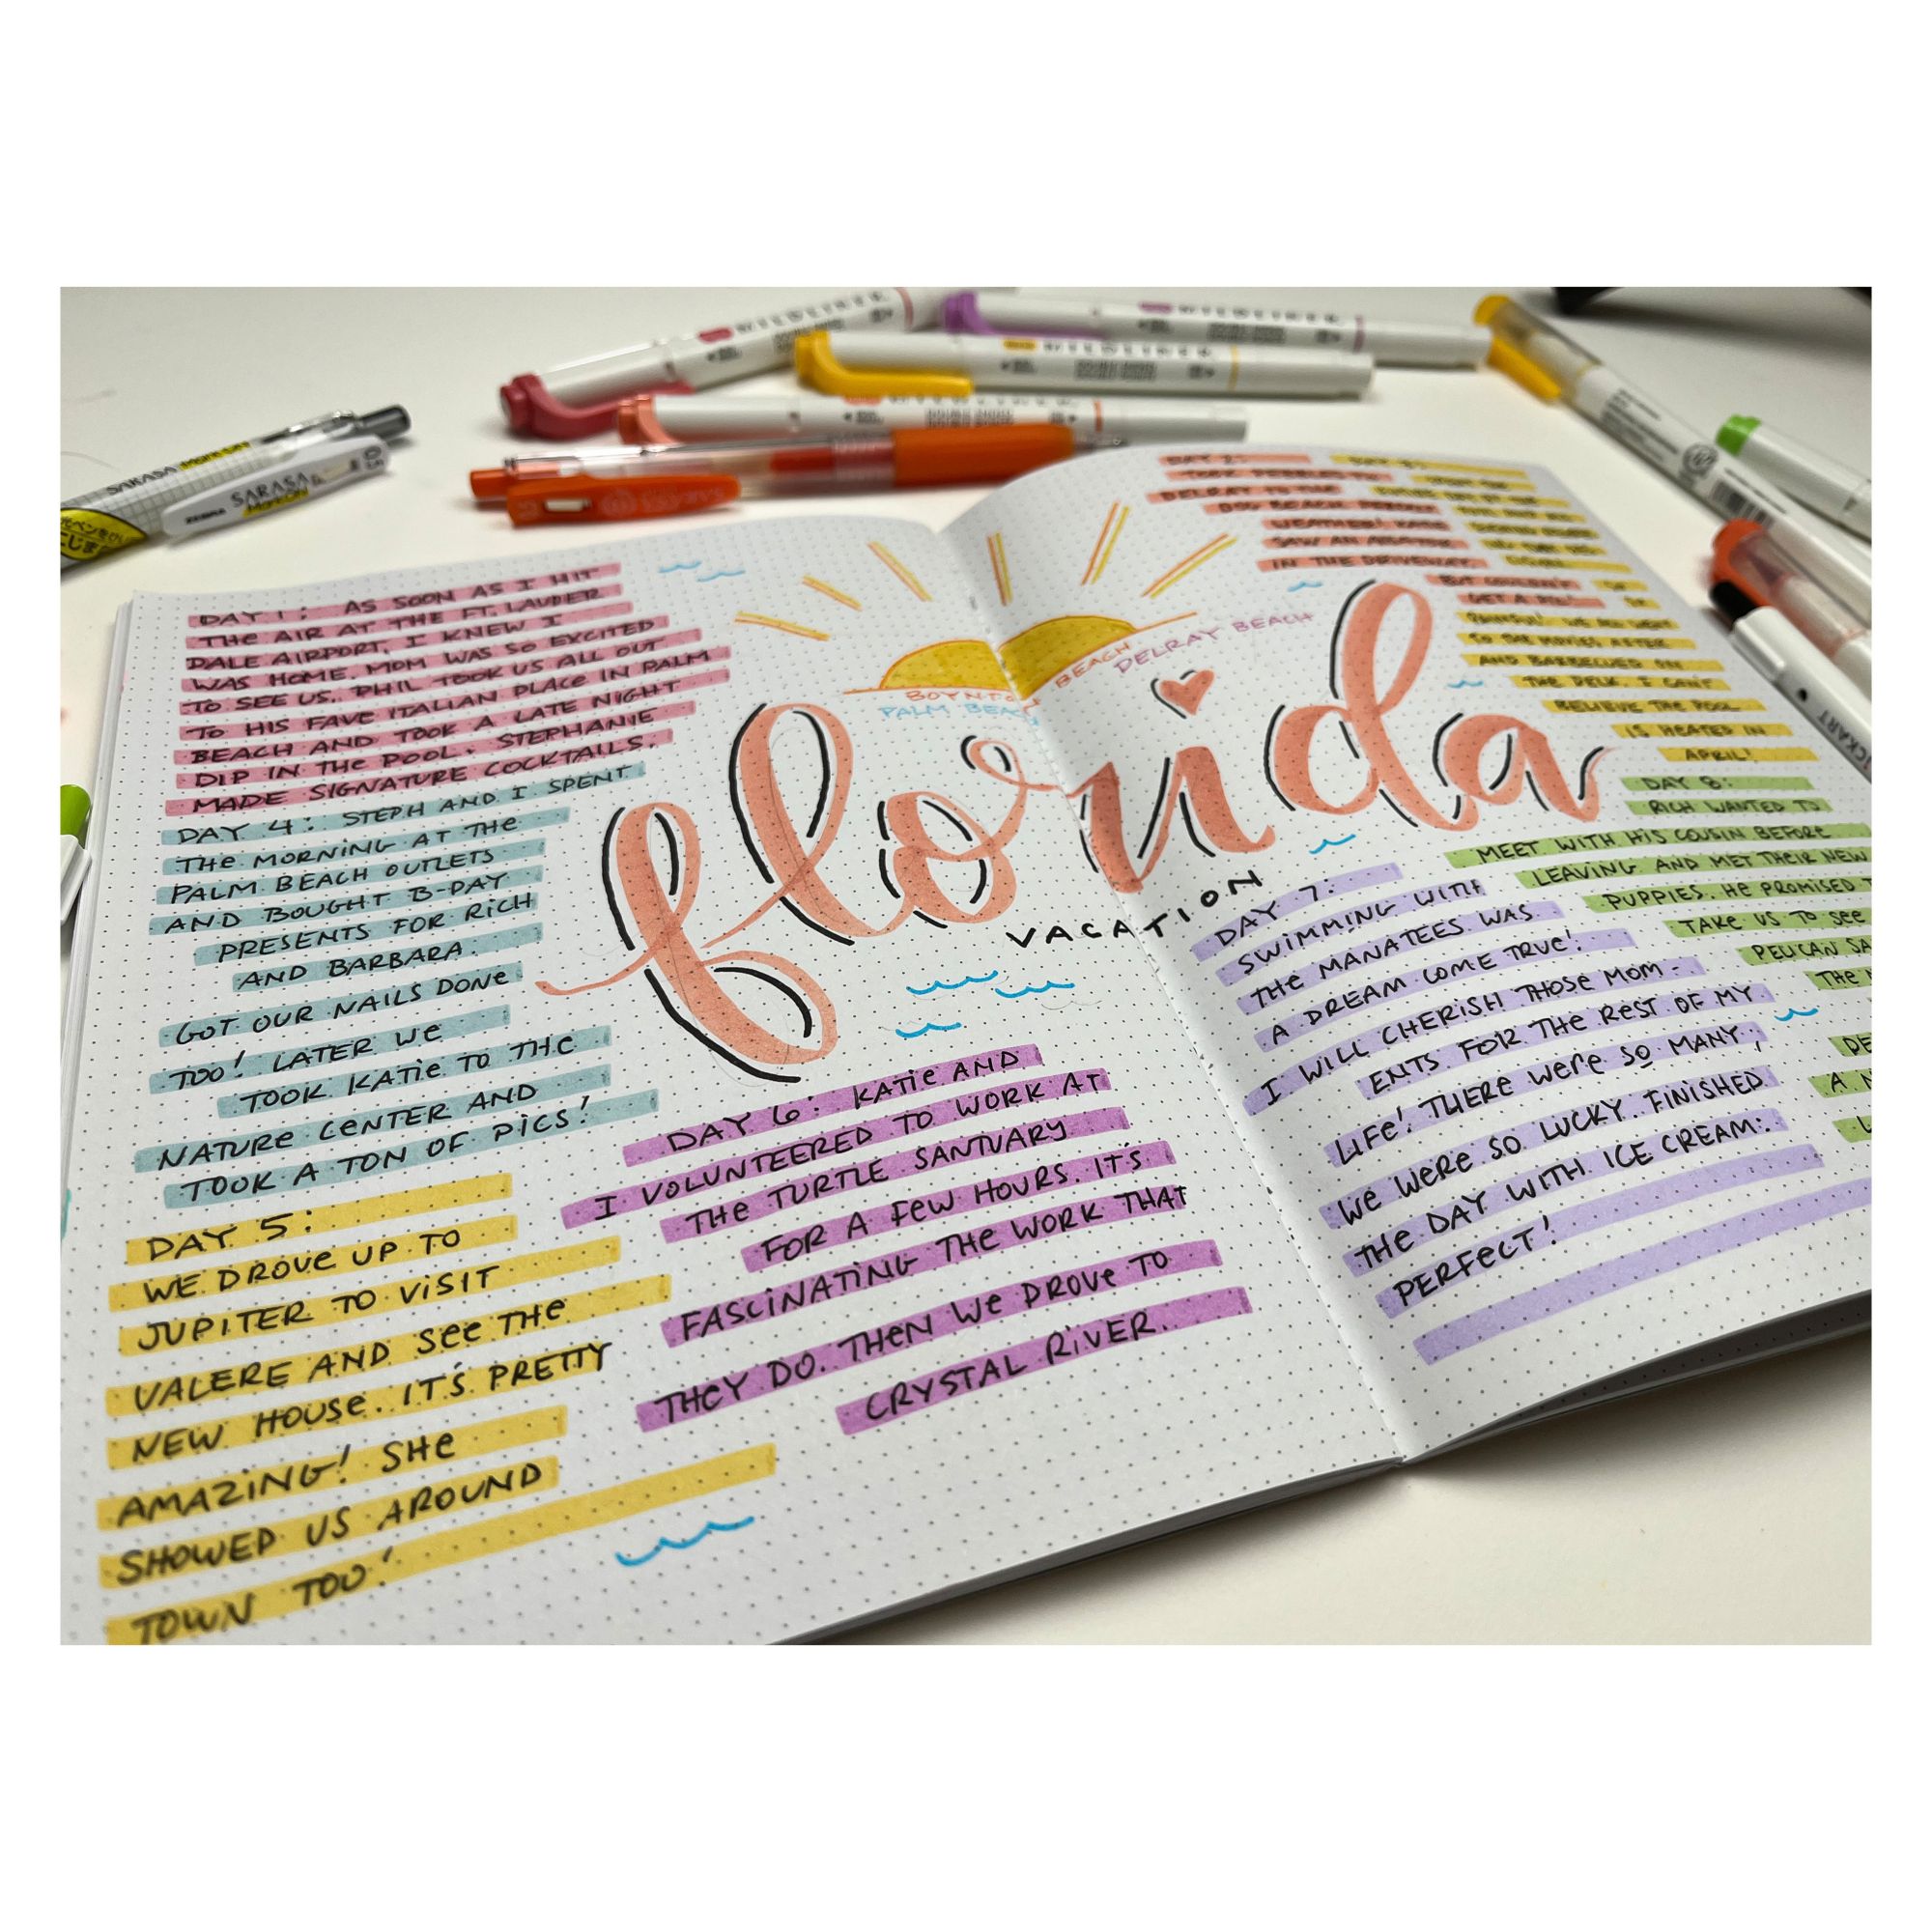 SARASA
SARASA
ZEBRA
DAY 1: AS SOON AS I HIT
THE AIR AT THE FT. LAUDER
DALE AIRPORT, I KNEW I
WAS HOME. MOM WAS SO EXCITED
TO SEE US. PHIL TOOK US ALL OUT
TO HIS FAVE ITALIAN PLACE IN PALM
BEACH AND TOOK A LATE NIGHT
DIP IN THE POOL. STEPHANIE
MADE SIGNATURE COCKTAILS.
DAY 4: STEPH AND I SPENT
THE MORNING AT THE
PALM BEACH OUTLETS
AND BOUGHT B-DAY
PRESENTS FOR RICH
AND BARBARA.
GOT OUR NAILS DONE
TOO! LATER WE
TOOK KATIE TO THE
NATURE CENTER AND
TOOK A TON OF PICS!
DAY 5:
WE DROVE UP TO
JUPITER TO VISIT
VALERE AND SEE THE
NEW HOUSE. IT'S PRETTY
AMAZING! SHE
SHOWED US AROUND
TOWN TOO!
BOYNTO BEACH
DELRAY BEACH
PALM BEACH
florida
VACATION
DAY 6: KATIE AND
I VOLUNTEERED TO WORK AT
THE TURTLE SANTUARY
FOR A FEW HOURS. IT'S
FASCINATING THE WORK THAT
THEY DO. THEN WE DROVE TO
CRYSTAL RIVER.
DAY 2:
DELRAY TO THE
DOG BEACH
WEATHER! KATIE
SAW AN
IN THE DRIVEWAY,
BUT COULDN'T
GET A PIC!
WE ALL WENT
TO THE MOVIES AFTER
AND BARBECUED ON
THE DECK. I CAN'T
BELIEVE THE POOL
IS HEATED IN
APRIL!
DAY 7:
SWIMMING WITH
THE MANATEES WAS
A DREAM COME TRUE!
I WILL CHERISH THOSE MOM-
ENTS FOR THE REST OF MY
LIFE! THERE WERE SO MANY,
WE WERE SO LUCKY. FINISHED
THE DAY WITH ICE CREAM.
PERFECT!
DAY 8:
RICH WANTED TO
MEET WITH HIS COUSIN BEFORE
LEAVING AND MET THEIR NEW
PUPPIES. HE PROMISED T
TAKE US TO SEE
PELICAN SA
THE
DE
A